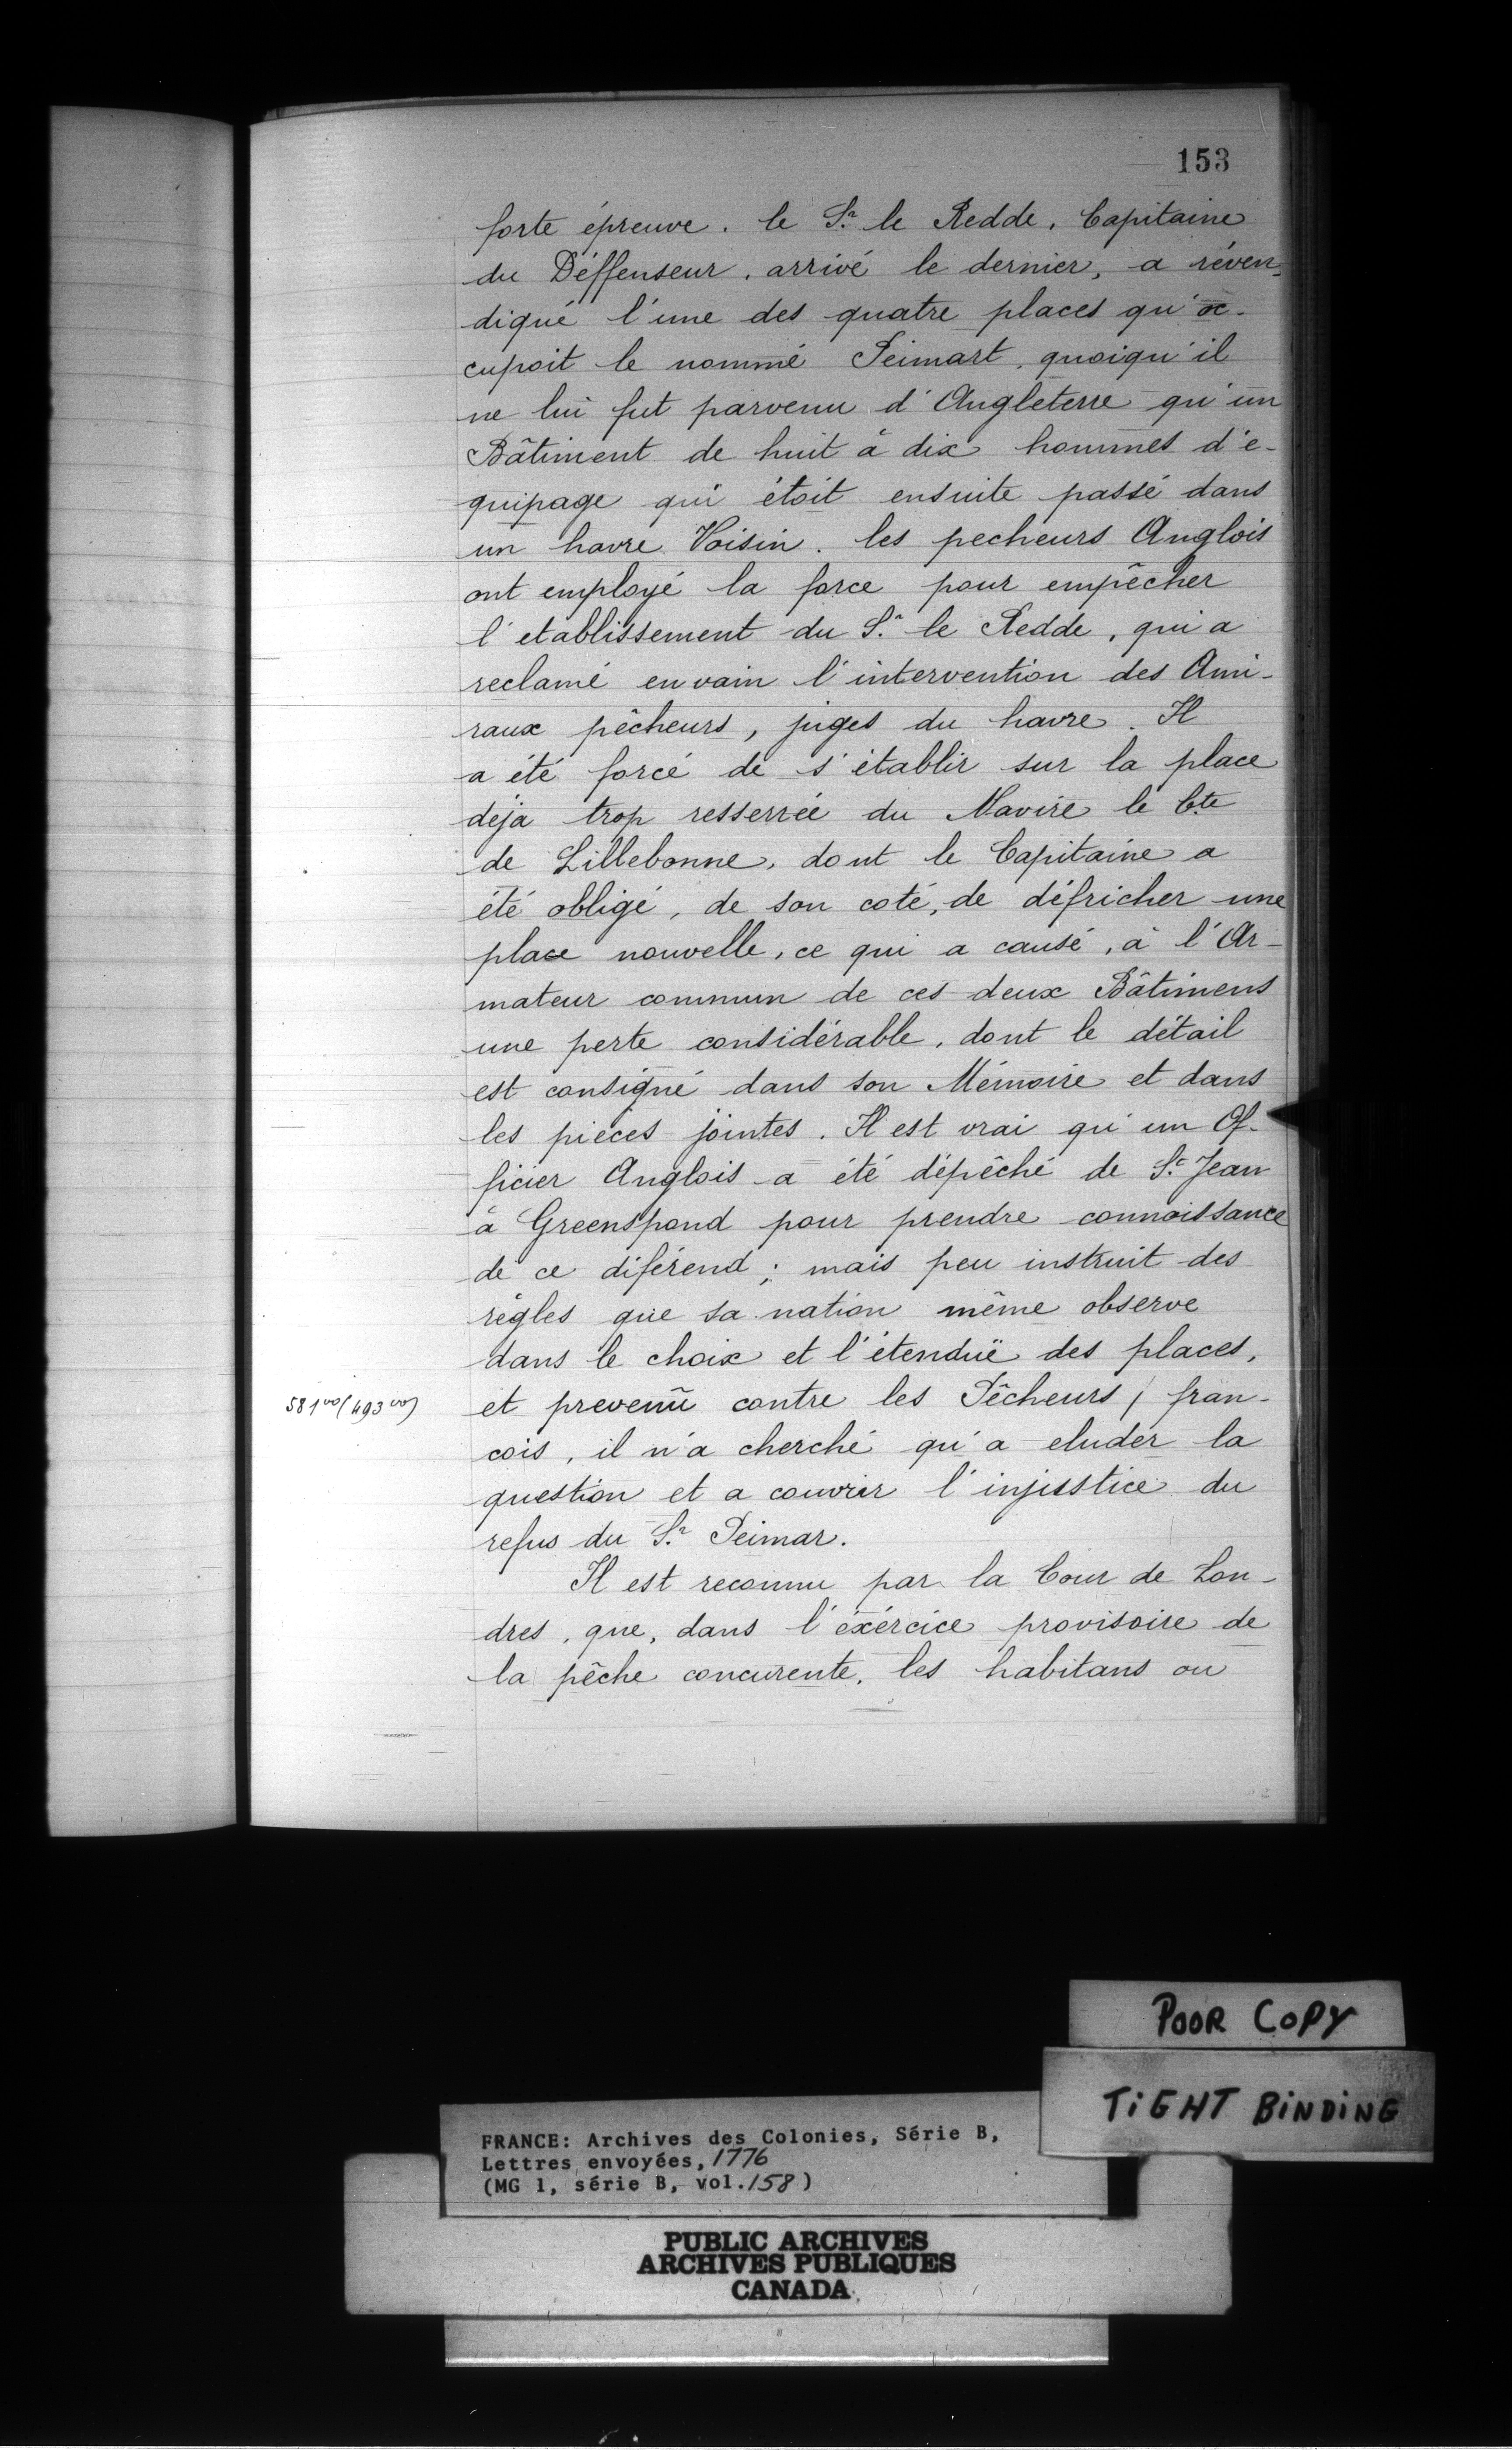 153
forte épreuve. le S.r le Redde. Capitaine
du Déffenseur. arrivé le dernier, a réven-
diqué l'une des quatre places qu'oc-
cupoit le nommé Peimart, quoiqu'il
ne lui fut parvenu d'Angleterre qu'un
Bâtiment de huit à dix hommes d'e-
quipage qui étoit ensuite passé dans
un havre Voisin. les pecheurs Anglois
ont employé la force pour empêcher
l'etablissement du S.r le Redde, qui a
reclamé en vain l'intervention des Ami-
raux pêcheurs, juges du havre. Il
a été forcé de s'établir sur la place
déja trop resserrée du Navire le C.te
de Lillebonne, dont le Capitaine a
été obligé, de son coté, de défricher une
place nouvelle, ce qui a causé, à l'Ar-
mateur commun de ces deux Bâtimens
une perte considérable, dont le détail
est consigné dans son Mémoire et dans
les pieces jointes. Il est vrai qu'un Of-
ficier Anglois a été dépêché de S.t Jean
à Greenspond pour prendre connoissance
de ce diférend; mais peu instruit des
règles que sa nation même observe
dans le choix et l'étenduë des places,
581 vo (493 vo)
et prevenû contre les Pêcheurs / fran-
cois, il n'a cherché qu'a eluder la
question et a couvrir l'injustice du
refus du S.r Peimar.
Il est reconnu par la Cour de Lon-
dres, que, dans l'éxércice provisoire de
la pêche concurente, les habitans ou
POOR COPY
TIGHT BINDING
FRANCE: Archives des Colonies, Série B,
Lettres envoyées, 1776
(MG 1, série B, vol. 158)
PUBLIC ARCHIVES
ARCHIVES PUBLIQUES
CANADA